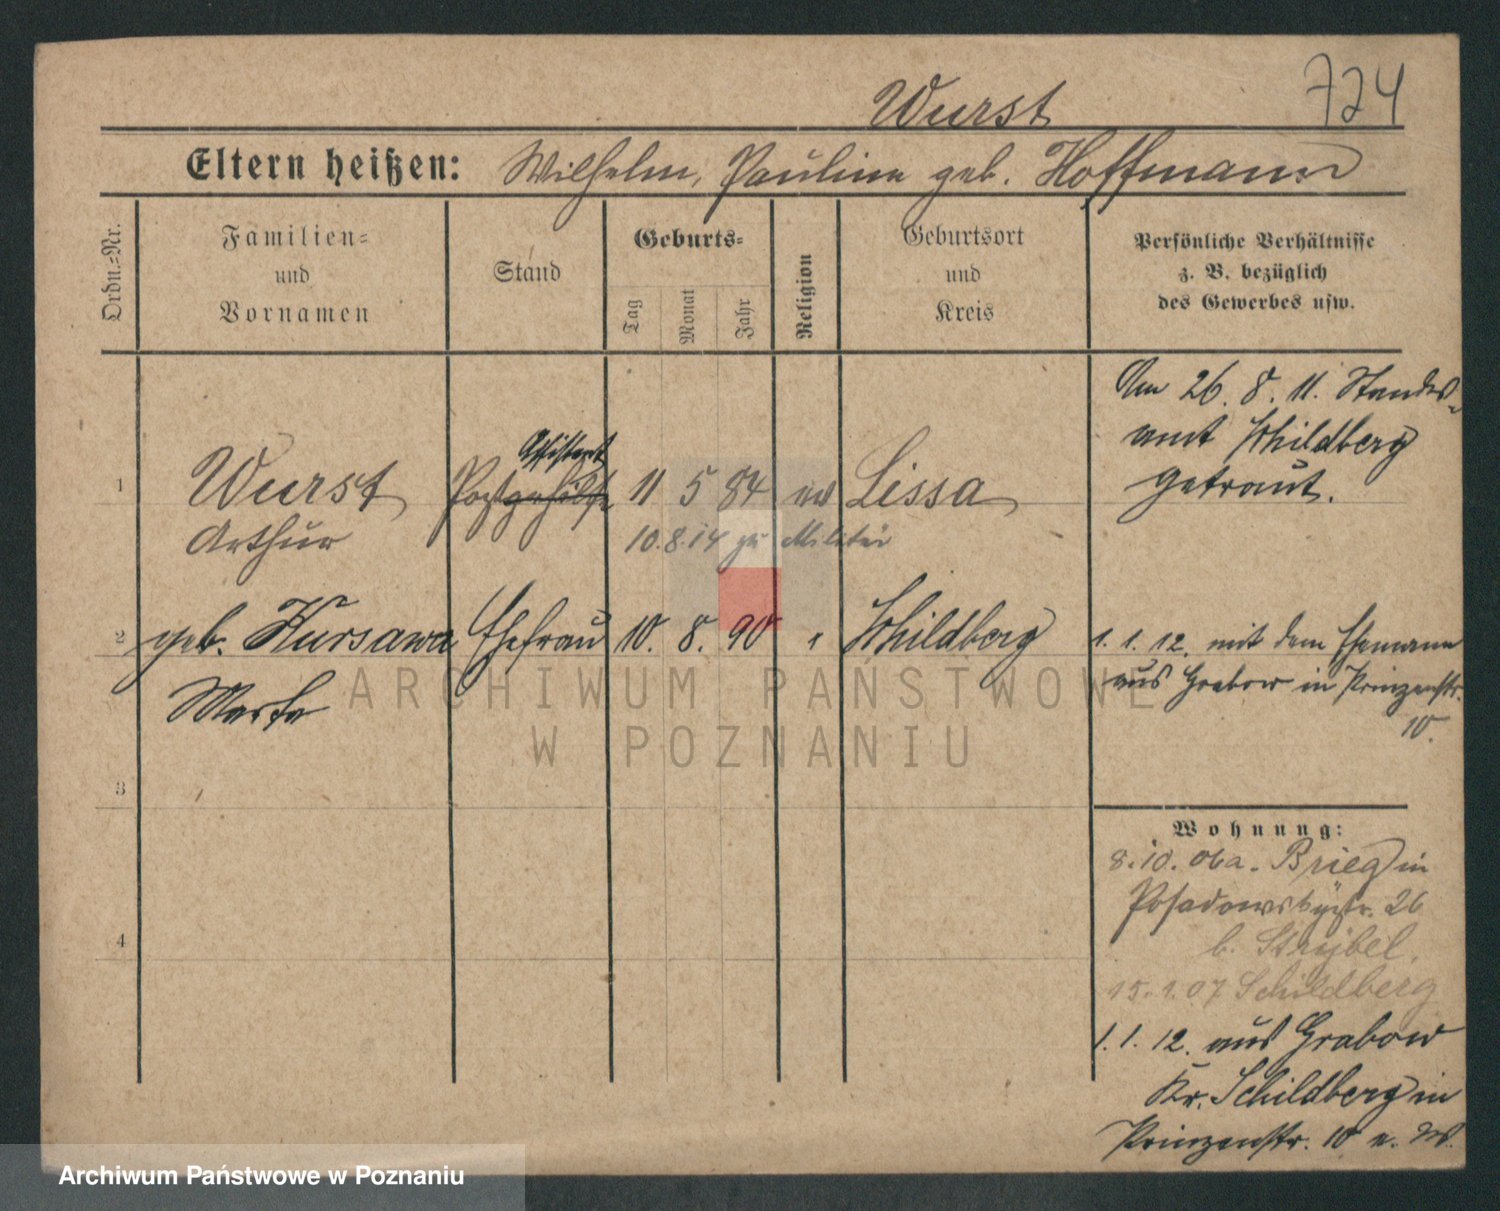 Wurst 724
Eltern heißen: Wilhelm, Pauline geb. Hoffmann
Ordn.-Nr.
Familien-
und
Vornamen
Stand
Geburts-
Tag
Monat
Jahr
Religion
Geburtsort
und
Kreis
Persönliche Verhältnisse
z. B. bezüglich
des Gewerbes usw.
Am 26. 8. 11. Standes-
amt Schildberg
getraut.
Assistent
1 Wurst Postgehilfe 11 5 84 ev Lissa
Arthur
10.8.14 zu Militär
2 geb. Kursawa Ehefrau 10. 8. 90 " Schildberg
Marta
1. 1. 12. mit dem Ehemann
aus Grabow in Prinzenstr.
10.
3
4
Wohnung:
8.10.06 a. Brieg in
Posadowskystr. 26
b. Strybel.
15.1.07 Schildberg
1. 1. 12. aus Grabow
Kr. Schildberg in
Prinzenstr. 10
ARCHIWUM PAŃSTWOWE
W POZNANIU
Archiwum Państwowe w Poznaniu